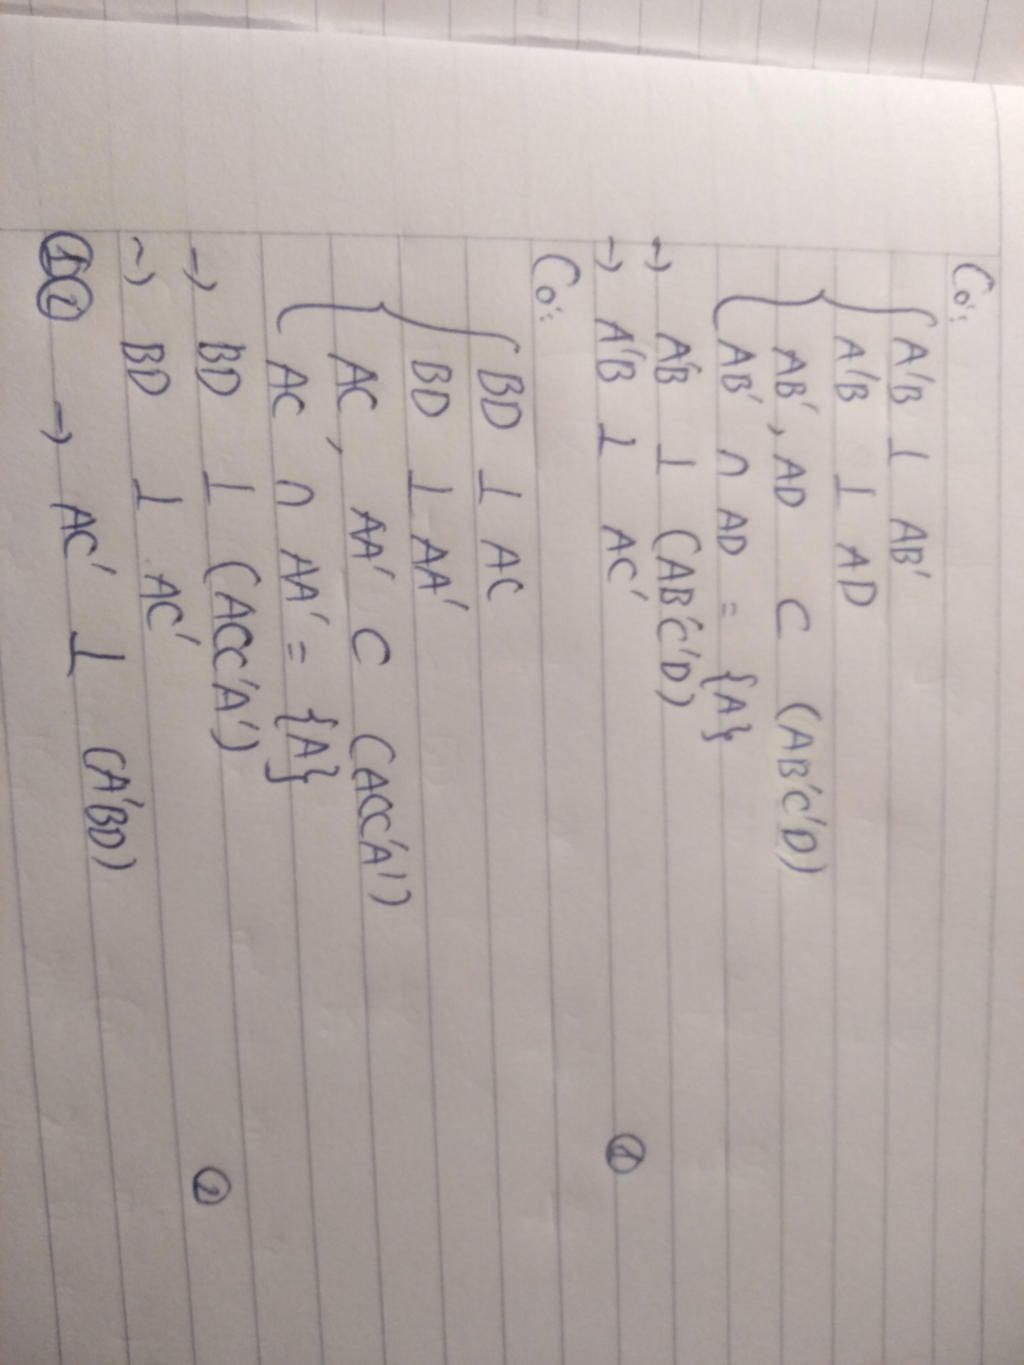 Có:
A'B ⊥ AB'
A'B ⊥ AD
AB', AD ⊂ (AB'C'D)
AB' ∩ AD = {A}
→ A'B ⊥ (AB'C'D)
→ A'B ⊥ AC' ①
Có:
BD ⊥ AC
BD ⊥ AA'
AC, AA' ⊂ (ACC'A')
AC ∩ AA' = {A}
→ BD ⊥ (ACC'A')
→ BD ⊥ AC' ②
①② → AC' ⊥ (A'BD)